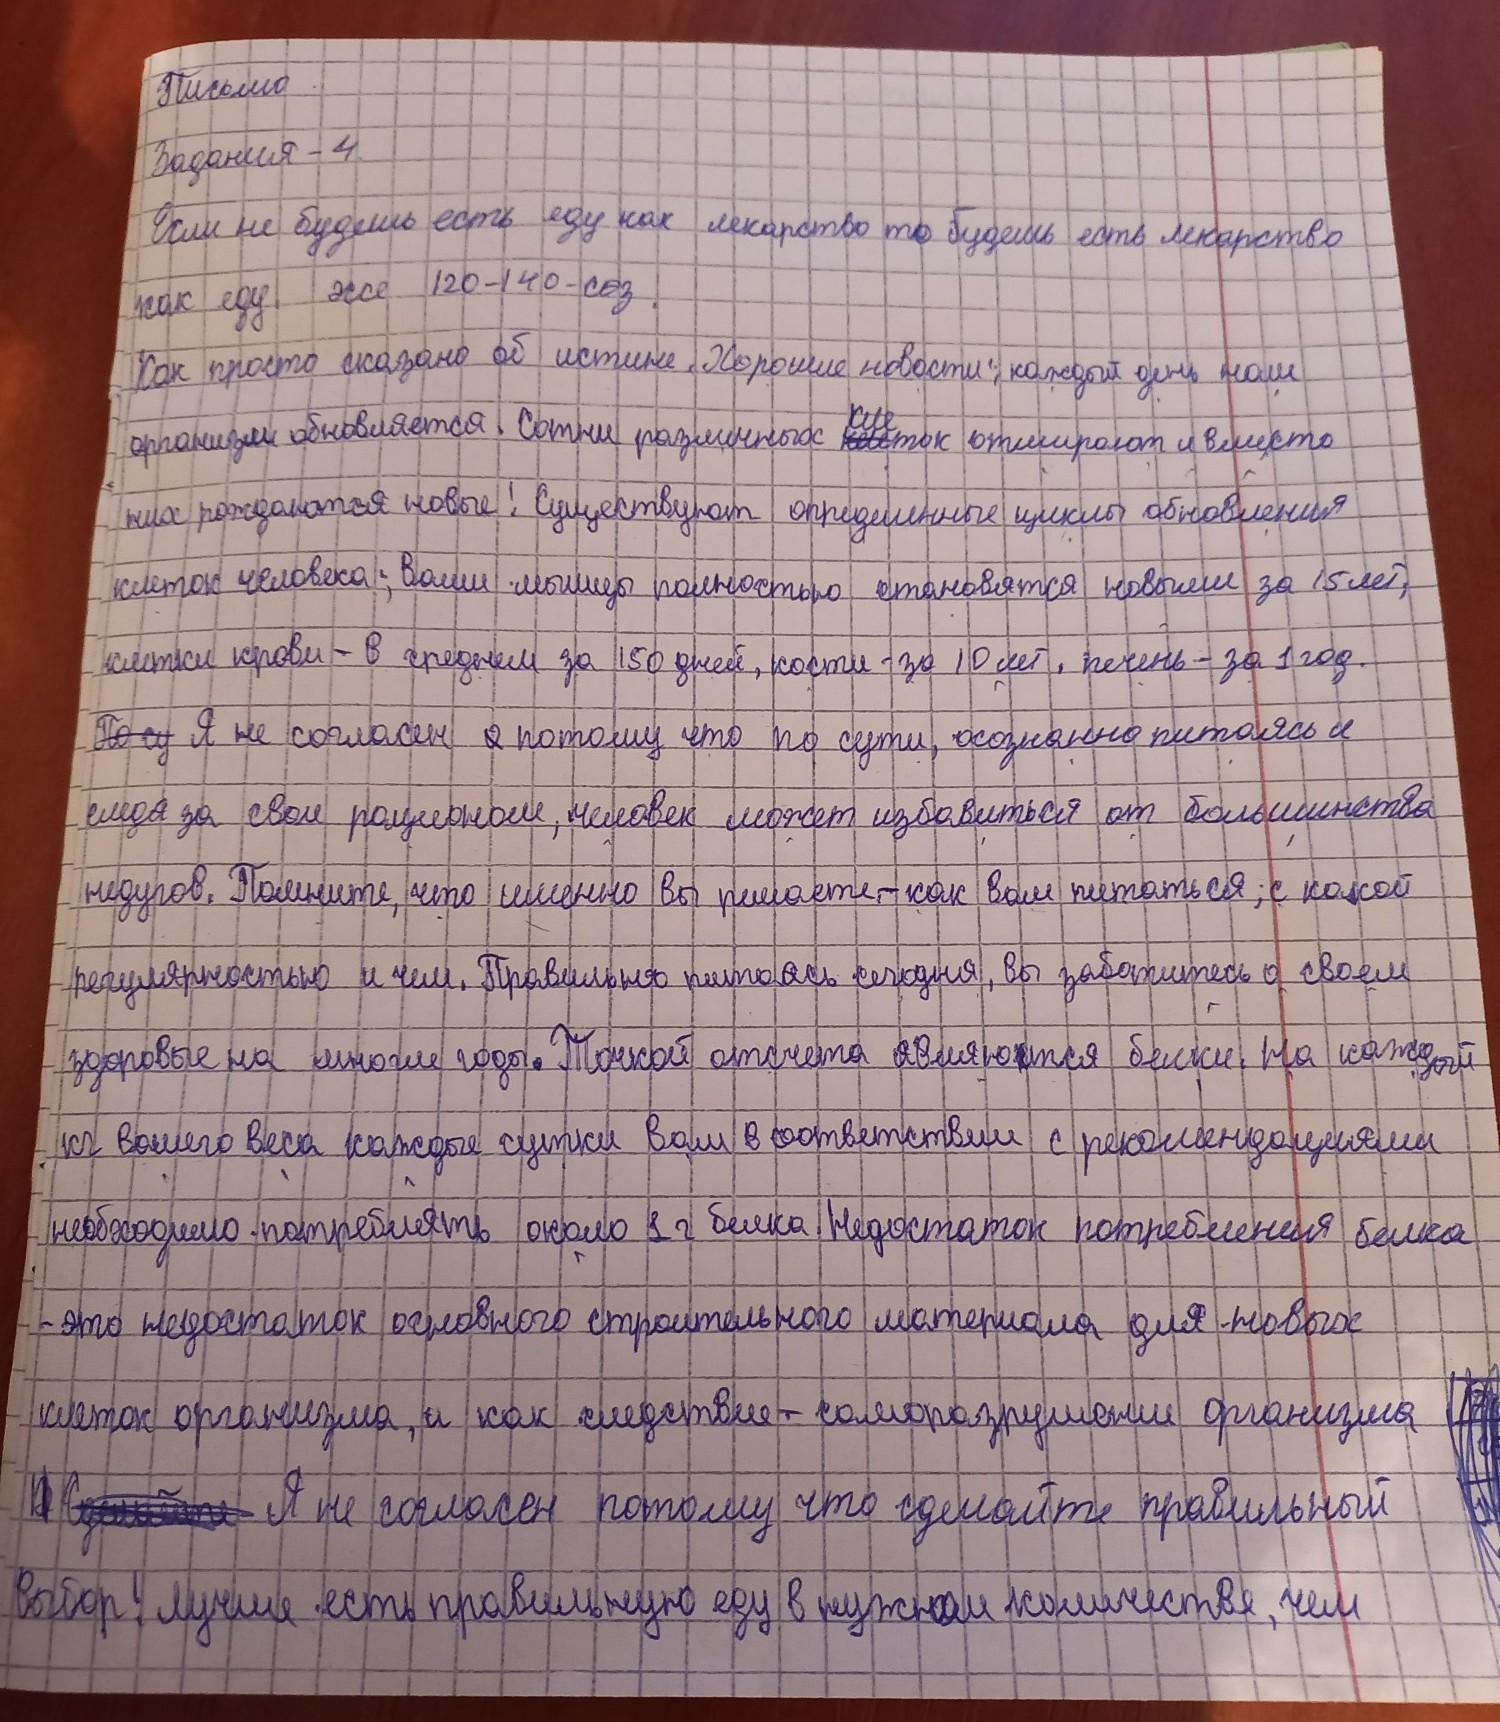 Письмо
Задания - 4
Если не будешь есть еду как лекарство то будешь есть лекарство
как еду. эссе 120-140-сөз.
Как просто сказано об истине. Хорошие новости: каждый день наш
организм обновляется. Сотни различных клеток отмирают и вместо
них рождаются новые! Существуют определенные циклы обновления
клеток человека; Ваши мышцы полностью становятся новыми за 15 лет,
клетки крови - в среднем за 150 дней, кости - за 10 лет, печень - за 1 год.
По су Я не согласен потому что по сути, осознанно питаясь и
следя за свои рационом, человек может избавиться от большинства
недугов. Помните, что именно вы решаете - как вам питаться, с какой
регулярностью и чем. Правильно питаясь сегодня, вы заботитесь о своем
здоровье на многие годы. Точкой отсчета являются белки. На каждый
кг вашего веса каждые сутки вам в соответствии с рекомендациями
необходимо потреблять около 1 г белка. Недостаток потребления белка
- это недостаток основного строительного материала для новых
клеток организма, и как следствие - саморазрушение организма
Я не согласен потому что сделайте правильный
выбор! лучше есть правильную еду в нужном количестве, чем